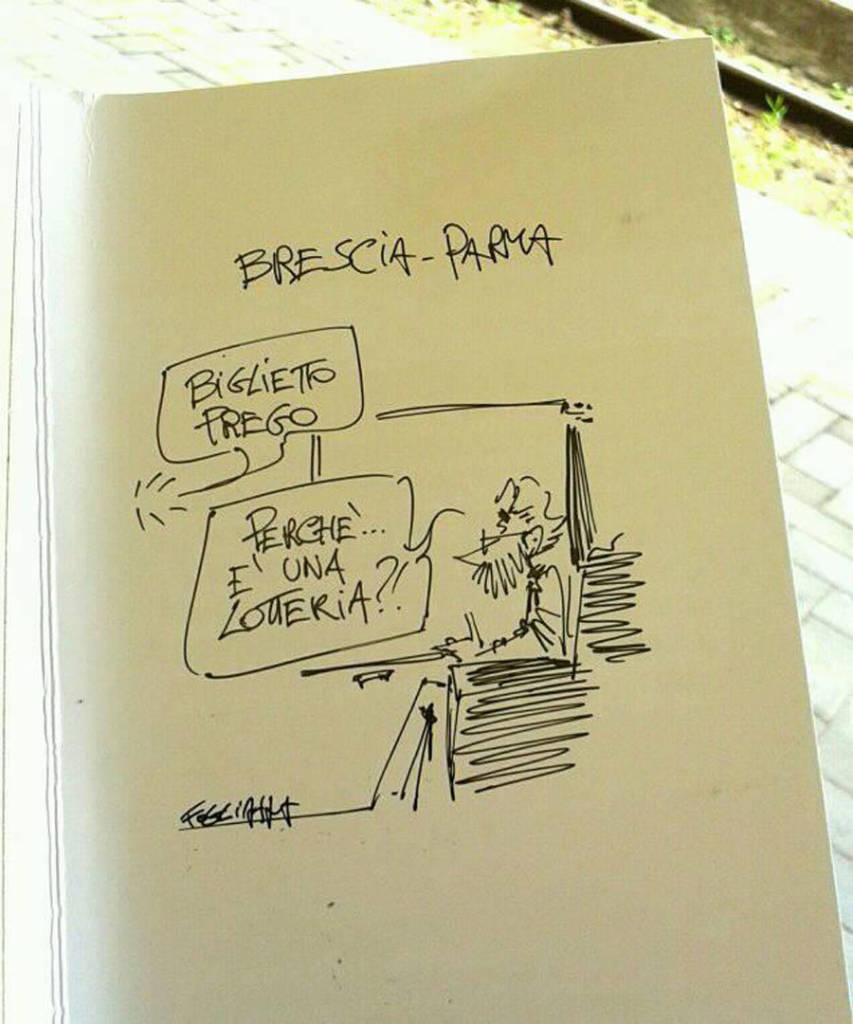 BRESCIA - PARMA
BIGLIETTO
PREGO
PERCHE'...
E' UNA
LOTTERIA?!